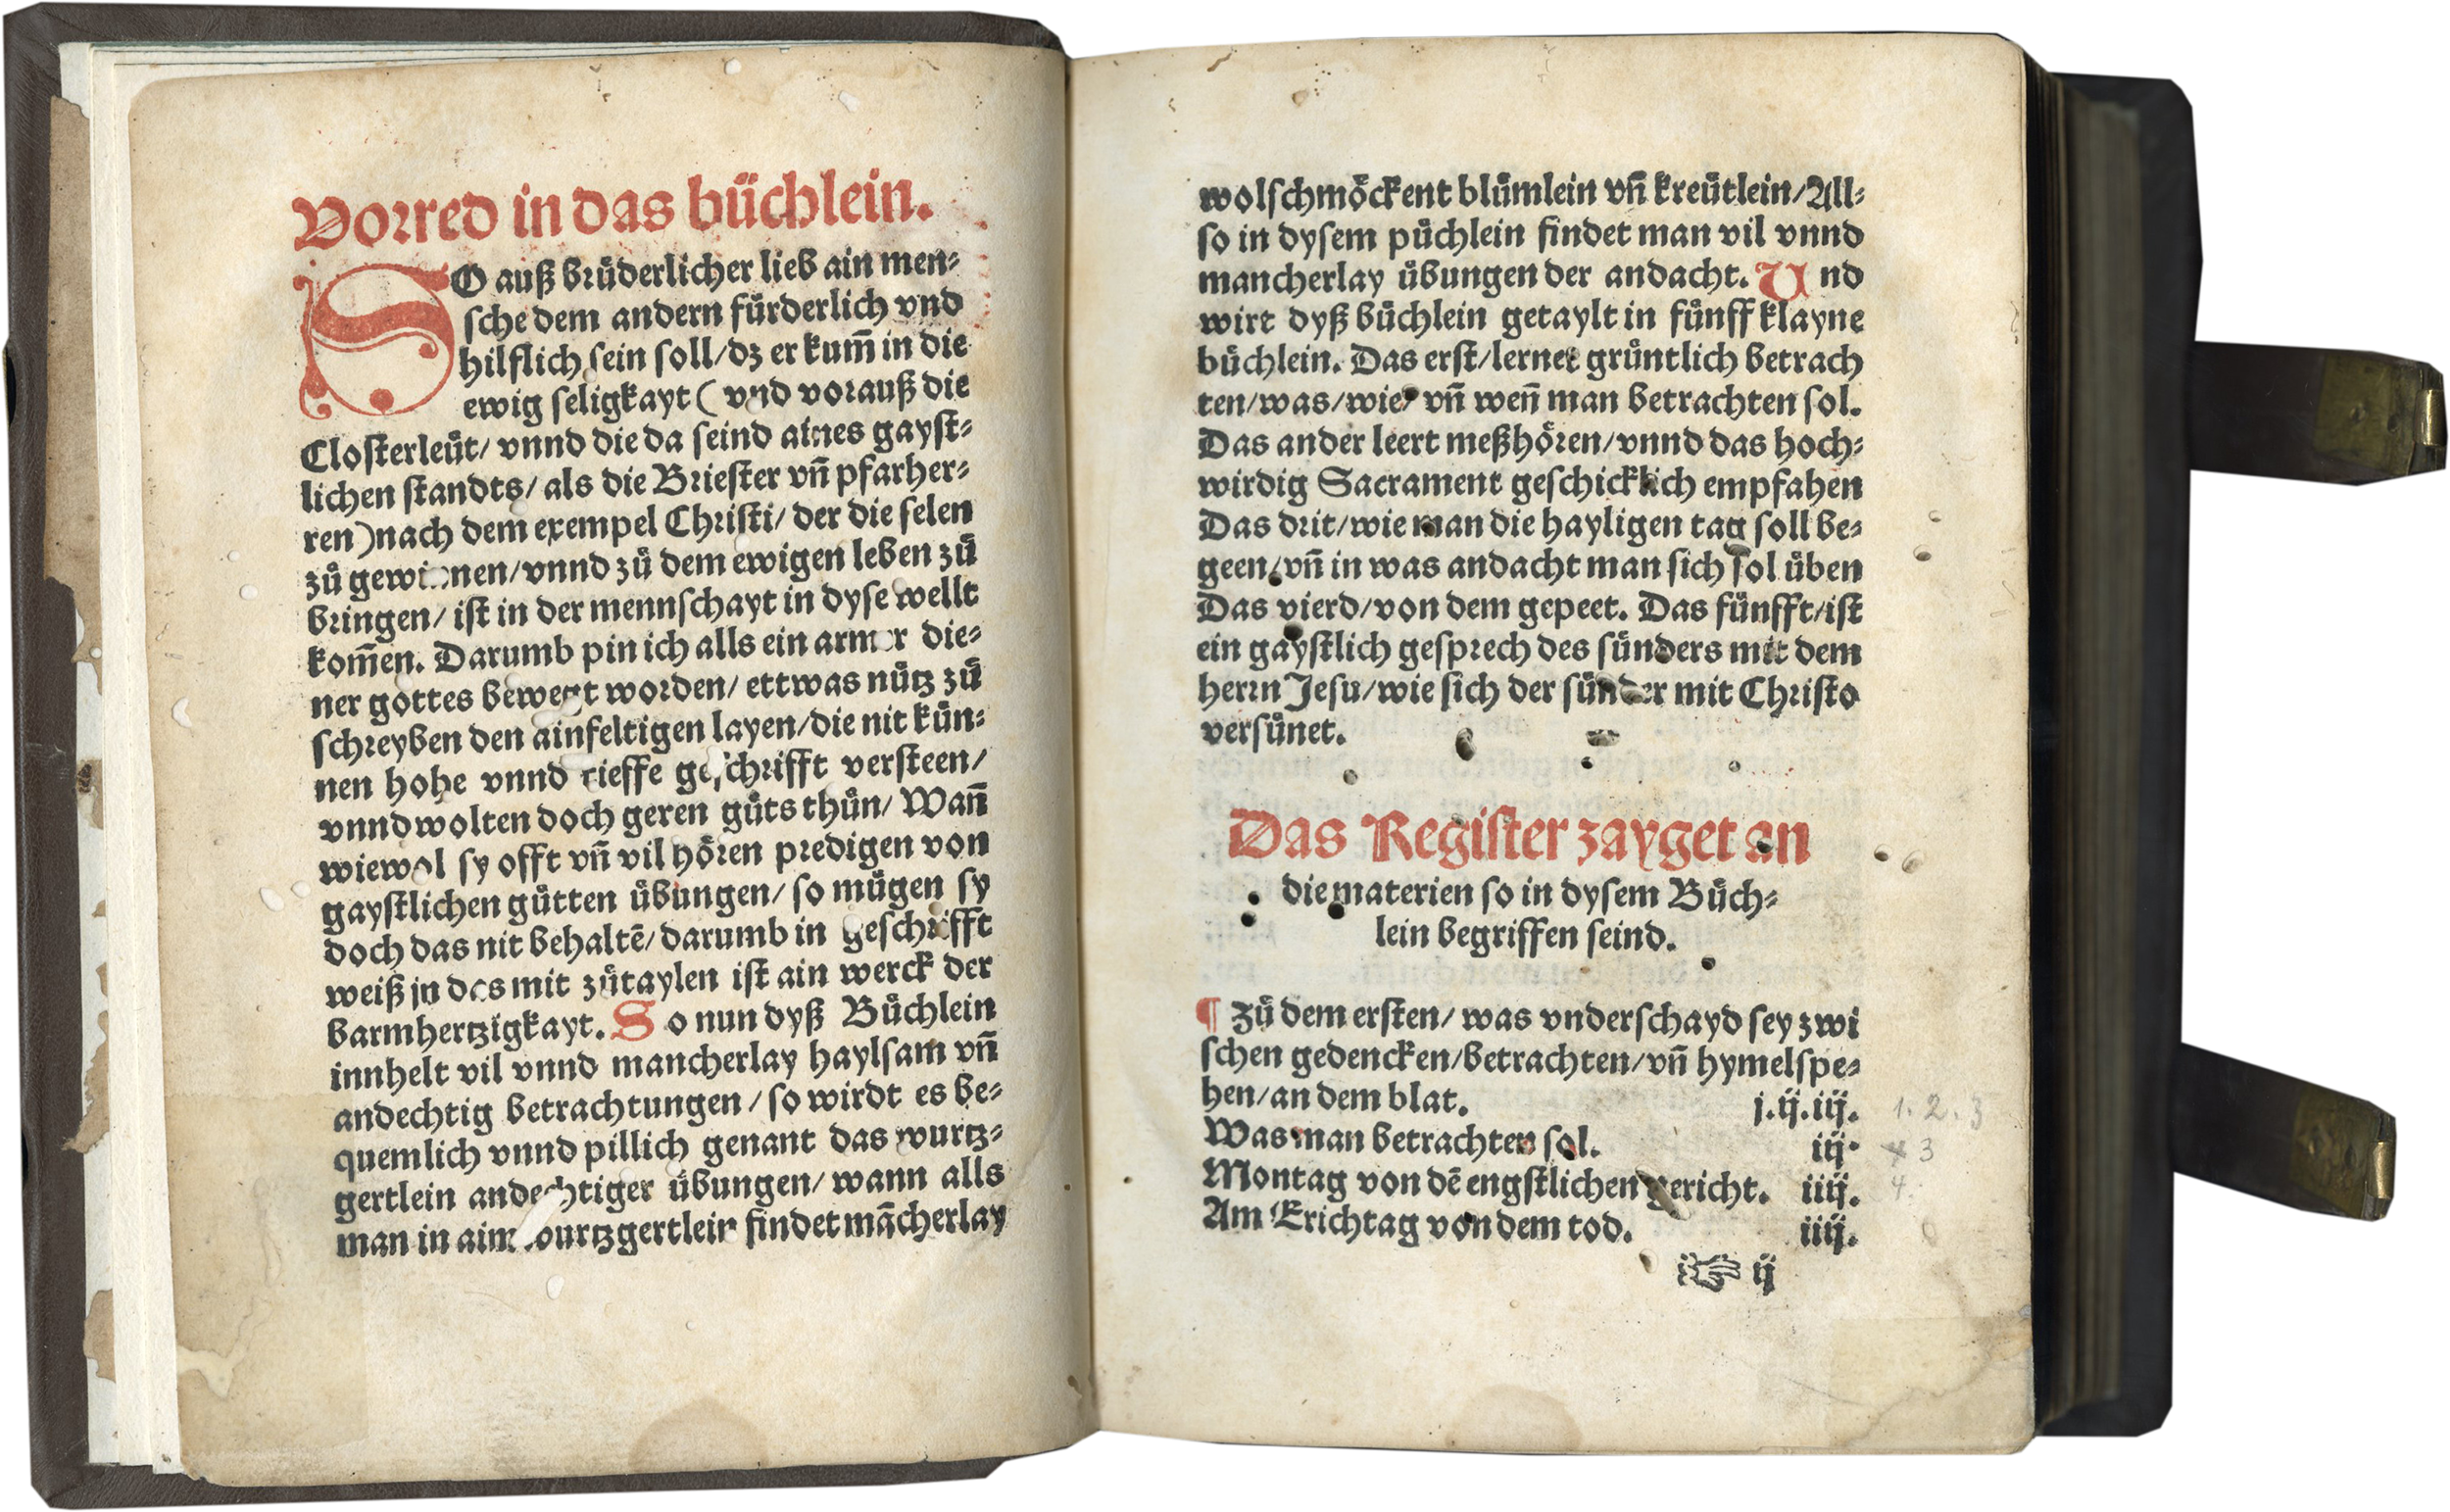 Vorred in das büchlein.
SO auß brůderlicher lieb ain men⸗
sche dem andern fürderlich vnd
hilflich sein soll/ dz er kum̄ in die
ewig seligkayt ( vnd vorauß die
Closterleüt/ vnnd die da seind aines gayst⸗
lichen standts/ als die Briester vn̄ pfarher⸗
ren) nach dem exempel Christi/ der die selen
zů gewinnen/ vnnd zů dem ewigen leben zů
bringen/ ist in der mennschayt in dyse wellt
kom̄en. Darumb pin ich alls ein armer die⸗
ner gottes bewegt worden/ ettwas nütz zů
schreyben den ainfeltigen layen/ die nit kün⸗
nen hohe vnnd tieffe geschrifft versteen/
vnnd wolten doch geren gůts thůn/ Wan̄
wiewol sy offt vn̄ vil hören predigen von
gaystlichen gůtten übungen/ so mügen sy
doch das nit behaltē/ darumb in geschrifft
weiß jn das mit zůtaylen ist ain werck der
barmhertzigkayt. So nun dyß Büchlein
innhelt vil vnnd mancherlay haylsam vn̄
andechtig betrachtungen / so wirdt es be⸗
quemlich vnnd pillich genant das wurtz⸗
gertlein andechtiger übungen/ wann alls
man in aim wurtzgertlein findet mācherlay
wolschmöckent blůmlein vn̄ kreütlein/ All⸗
so in dysem půchlein findet man vil vnnd
mancherlay übungen der andacht. Vnd
wirt dyß büchlein getaylt in fünff klayne
büchlein. Das erst/ lernet grüntlich betrach
ten/ was/ wie/ vn̄ wen̄ man betrachten sol.
Das ander leert meßhören/ vnnd das hoch⸗
wirdig Sacrament geschicklich empfahen
Das drit/ wie man die hayligen tag soll be⸗
geen/ vn̄ in was andacht man sich sol üben
Das vierd/ von dem gepeet. Das fünfft/ ist
ein gaystlich gesprech des sünders mit dem
herrn Jesu/ wie sich der sünder mit Christo
versünet.
Das Register zayget an
die materien so in dysem Büch⸗
lein begriffen seind.
¶ Zů dem ersten/ was vnderschayd sey zwi
schen gedencken/ betrachten/ vn̄ hymelspe⸗
hen/ an dem blat. j.ij.iij. 1. 2. 3
Was man betrachten sol. iij. 3
Montag von dē engstlichen gericht. iiij. 4.
Am Erichtag von dem tod. iiij.
☞ ij